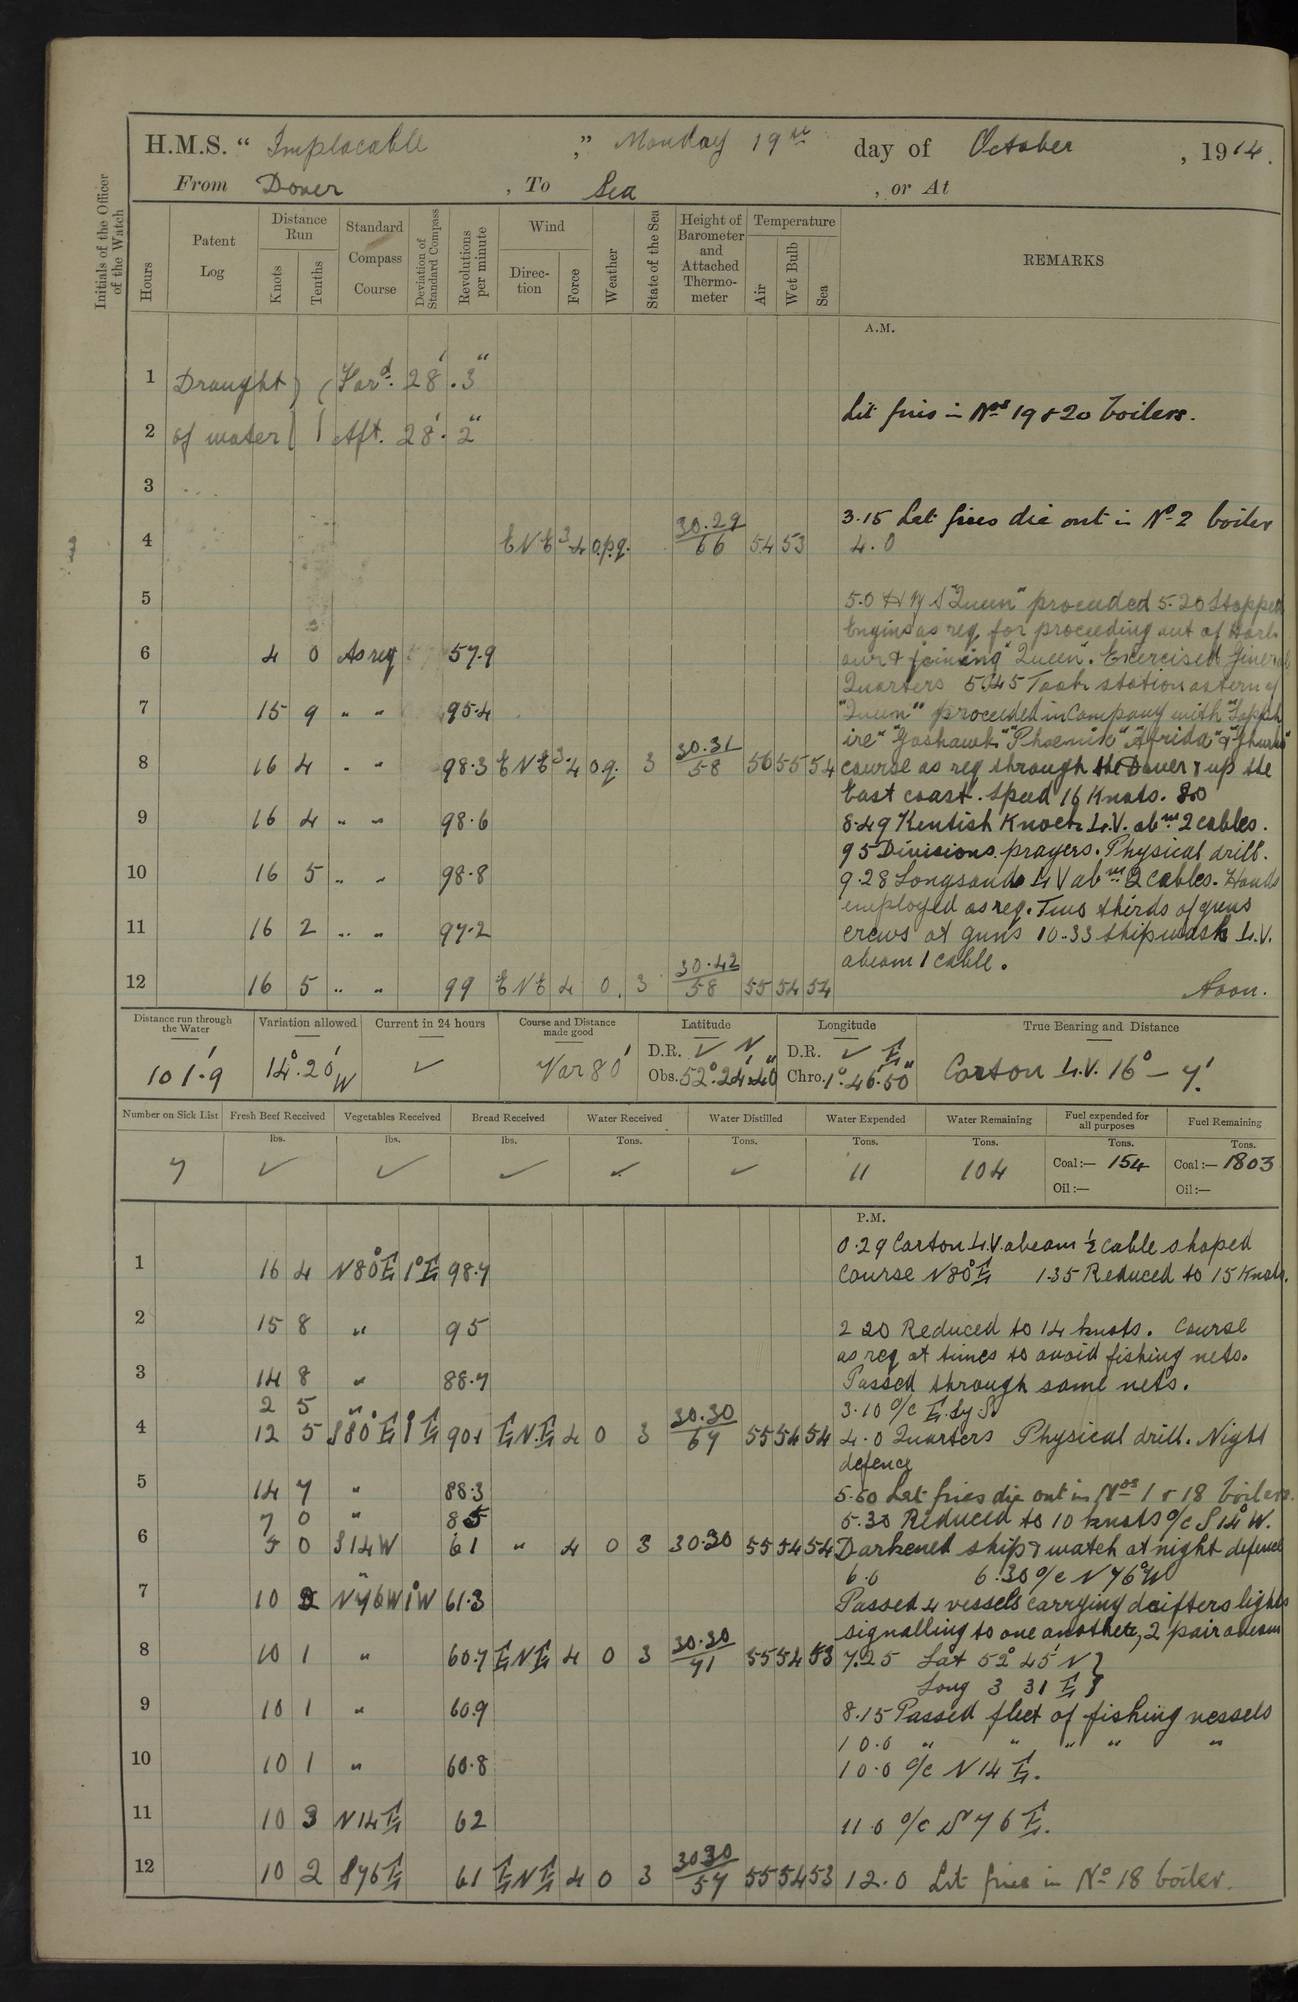 H.M.S. “ Implacable ,” Monday 19th day of October , 1914.
From Dover , To Sea , or At
Initials of the Officer of the Watch
Hours
Patent Log
Distance Run
Knots
Tenths
Standard Compass Course
Deviation of Standard Compass
Revolutions per minute
Wind
Direction
Force
Weather
State of the Sea
Height of Barometer and Attached Thermometer
Temperature
Air
Wet Bulb
Sea
REMARKS
A.M.
1 Draught Ford. 28'.3"
2 of water Aft. 28'.2" Lit fires in Nos 19 & 20 boilers.
3
3.15 Let fires die out in No 2 boiler
4 ENE 3-4 o.p.q. 30.29/66 54 53 4.0
5 5.0 H M S "Queen" proceeded 5.20 Stopped
Engines as req for proceeding out of Harb
6 4 0 As req 57.9 our & joining "Queen". Exercised General
Quarters 5.45 Took station astern of
7 15 9 " " 95.4 "Queen" proceeded in Company with "Sapph
ire" "Goshawk" "Phoenix" "Afrida" & "Ghurka"
8 16 4 " " 98.3 ENE 3-4 o.q. 3 30.31/58 56 55 54 course as req through the Dover & up the
East coast. Speed 16 Knots. 8.0
9 16 4 " " 98.6 8.49 Kentish Knock L.V. abm 2 cables.
9 5 Divisions prayers. Physical drill.
10 16 5 " " 98.8 9.28 Longsand L V abm 2 cables. Hands
employed as req. Two thirds of guns
11 16 2 " " 97.2 crews at guns 10.33 Shipwash L.V.
abeam 1 cable.
12 16 5 " " 99 ENE 4 o. 3 30.42/58 55 54 54 Noon.
Distance run through the Water
101'.9
Variation allowed
14°.20' W
Current in 24 hours
✓
Course and Distance made good
Var 80'
Latitude
D.R. ✓ N
Obs. 52°.24'.40"
Longitude
D.R. ✓ E
Chro. 1°.46'.50"
True Bearing and Distance
Corton L.V. 16° – 7'.
Number on Sick List
7
Fresh Beef Received
lbs.
✓
Vegetables Received
lbs.
✓
Bread Received
lbs.
✓
Water Received
Tons.
✓
Water Distilled
Tons.
✓
Water Expended
Tons.
11
Water Remaining
Tons.
104
Fuel expended for all purposes
Tons.
Coal:— 154
Oil:—
Fuel Remaining
Tons.
Coal:— 1803
Oil:—
P.M.
0.29 Corton L.V. abeam ½ cable shaped
1 16 4 N80°E 1°E 98.7 Course N80°E 1.35 Reduced to 15 Knots.
2 15 8 " 95 2 20 Reduced to 14 knots. Course
as req at times to avoid fishing nets.
3 14 8 " 88.7 Passed through some nets.
2 5 " 3.10 o/c E. by S.
4 12 5 S80°E 1°E 90.1 E.N.E 4 o 3 30.30/67 55 54 54 4.0 Quarters Physical drill. Night
defence
5 14 7 " 88.3 5.50 Let fires die out in Nos 1 & 18 boilers.
7 0 " 85 5.30 Reduced to 10 knots o/c S 14° W.
6 5 0 S14W 61 " 4 o 3 30.30 55 54 54 Darkened ship & watch at night defence
6.0 6.30 o/c N 76°W
7 10 2 N76W 1°W 61.3 Passed 4 vessels carrying drifters lights
signalling to one another, 2 pair abeam
8 10 1 " 60.7 ENE 4 o 3 30.30/71 55 54 53 7.25 Lat 52° 45' N
Long 3 31 E
9 10 1 " 60.9 8.15 Passed fleet of fishing vessels
10.0 " " " " "
10 10 1 " 60.8 10.0 o/c N 14 E.
11 10 3 N14E 62 11.0 o/c S 76 E.
12 10 2 S76E 61 ENE 4 o 3 30.30/57 55 54 53 12.0 Lit fires in No 18 boiler.